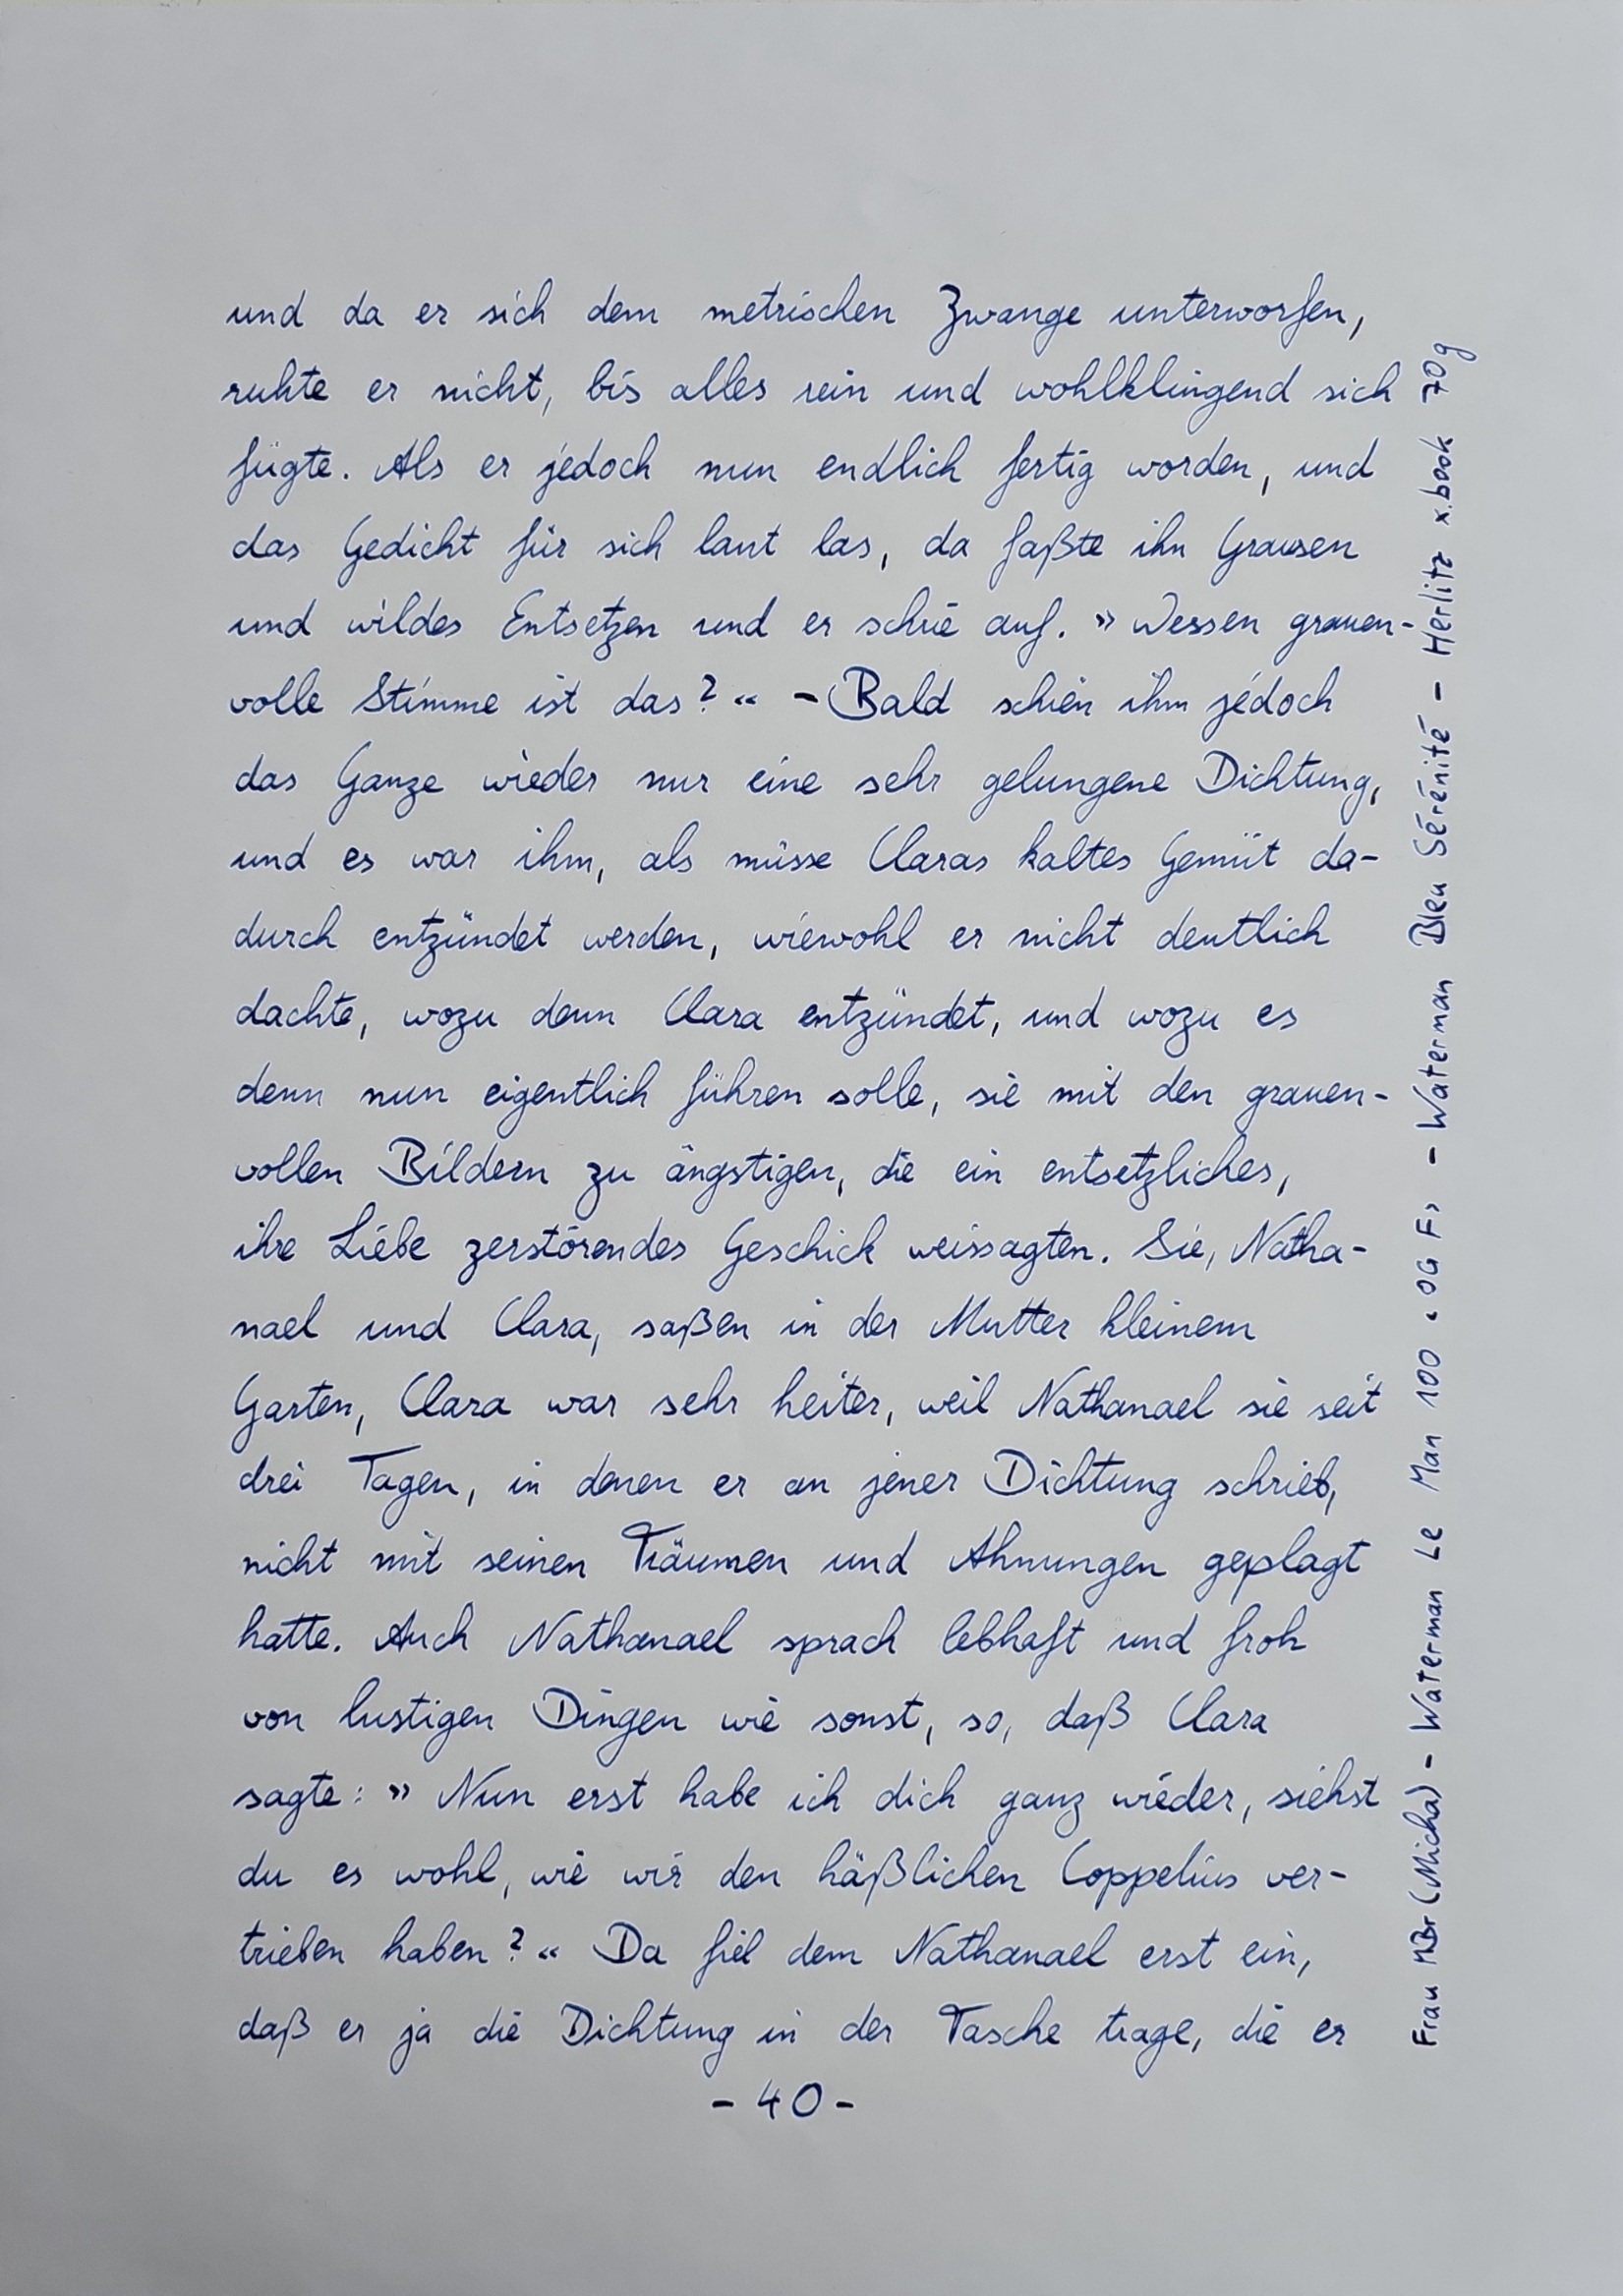 und da er sich dem metrischen Zwange unterworfen,
ruhte er nicht, bis alles rein und wohlklingend sich
fügte. Als er jedoch nun endlich fertig worden, und
das Gedicht für sich laut las, da faßte ihn Grausen
und wildes Entsetzen und er schrie auf. »Wessen grauen-
volle Stimme ist das?« - Bald schien ihm jedoch
das Ganze wieder nur eine sehr gelungene Dichtung,
und es war ihm, als müsse Claras kaltes Gemüt da-
durch entzündet werden, wiewohl er nicht deutlich
dachte, wozu denn Clara entzündet, und wozu es
denn nun eigentlich führen solle, sie mit den grauen-
vollen Bildern zu ängstigen, die ein entsetzliches,
ihre Liebe zerstörendes Geschick weissagten. Sie, Natha-
nael und Clara, saßen in der Mutter kleinem
Garten, Clara war sehr heiter, weil Nathanael sie seit
drei Tagen, in denen er an jener Dichtung schrieb,
nicht mit seinen Träumen und Ahnungen geplagt
hatte. Auch Nathanael sprach lebhaft und froh
von lustigen Dingen wie sonst, so, daß Clara
sagte: »Nun erst habe ich dich ganz wieder, siehst
du es wohl, wie wir den häßlichen Coppelius ver-
trieben haben?« Da fiel dem Nathanael erst ein,
daß er ja die Dichtung in der Tasche trage, die er
- 40 -
Frau MBr (Micha) - Waterman Le Man 100 <OG F> - Waterman Bleu Sérénité - Herlitz x.book 70g